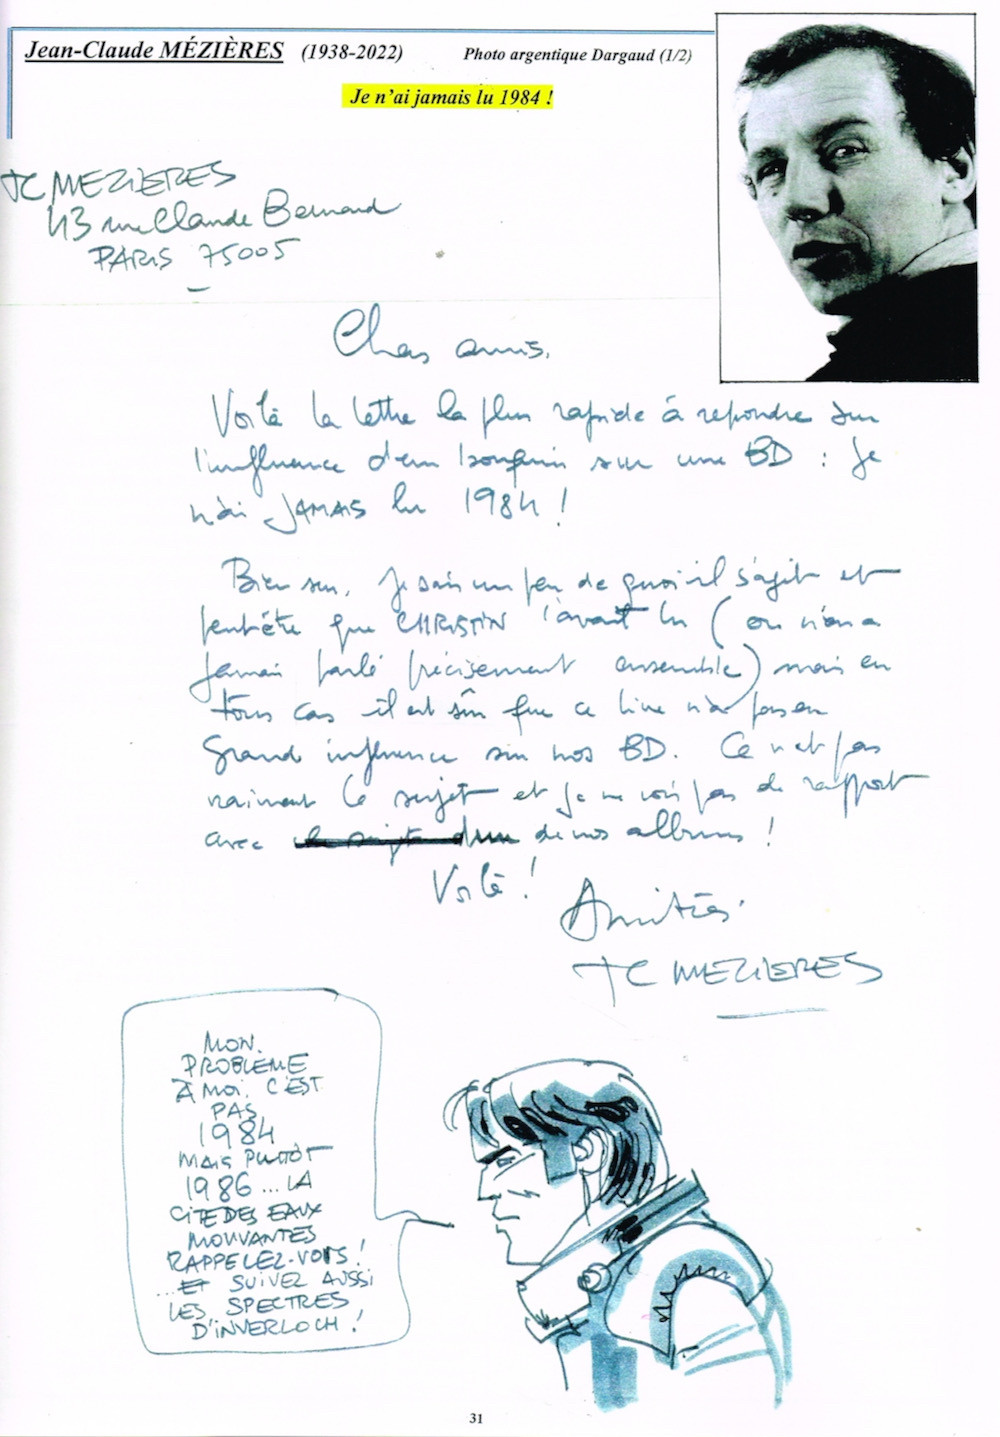 Jean-Claude MÉZIÈRES (1938-2022) Photo argentique Dargaud (1/2)
Je n'ai jamais lu 1984 !
JC MEZIERES
43 rue Claude Bernard
PARIS 75005
Chers amis,
Voilà la lettre la plus rapide à repondre sur
l'influence d'un bouquin sur une BD : je
n'ai JAMAIS lu 1984 !
Bien sur, je sais un peu de quoi il s'agit et
peut-être que CHRISTIN l'avait lu (on n'en a
jamais parlé précisement ensemble) mais en
tous cas il est sûr que ce livre n'a pas eu
grand influence sur nos BD. Ce n'est pas
vraiment le sujet et je ne vois pas de rapport
avec de nos albums !
Voilà !
Amitiés
JC MEZIERES
MON
PROBLÈME
À MOI. C'EST
PAS
1984
MAIS PLUTÔT
1986 ... LA
CITE DES EAUX
MOUVANTES
RAPPELEZ-VOUS !
... ET SUIVEZ AUSSI
LES SPECTRES
D'INVERLOCH !
31